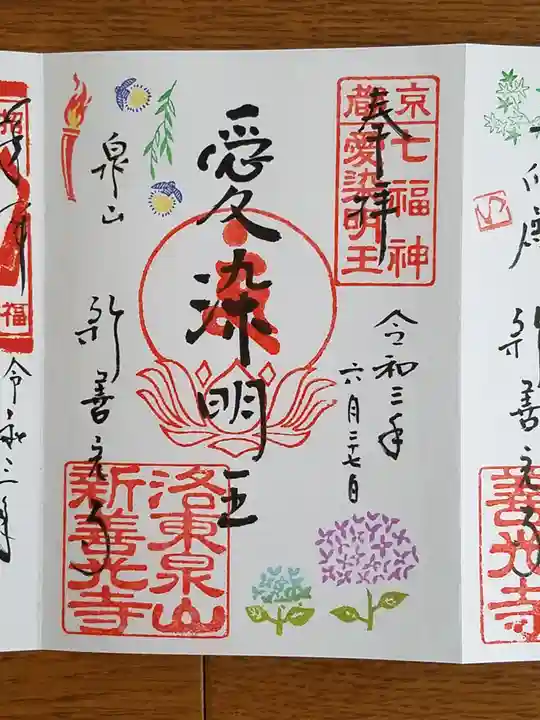 京
七福神
蔵
愛染明王
奉拝
令和三年
六月二十七日
愛染明王
泉山
新善光寺
洛東泉山
新善光寺
善光寺
新善光寺
令和三年
福